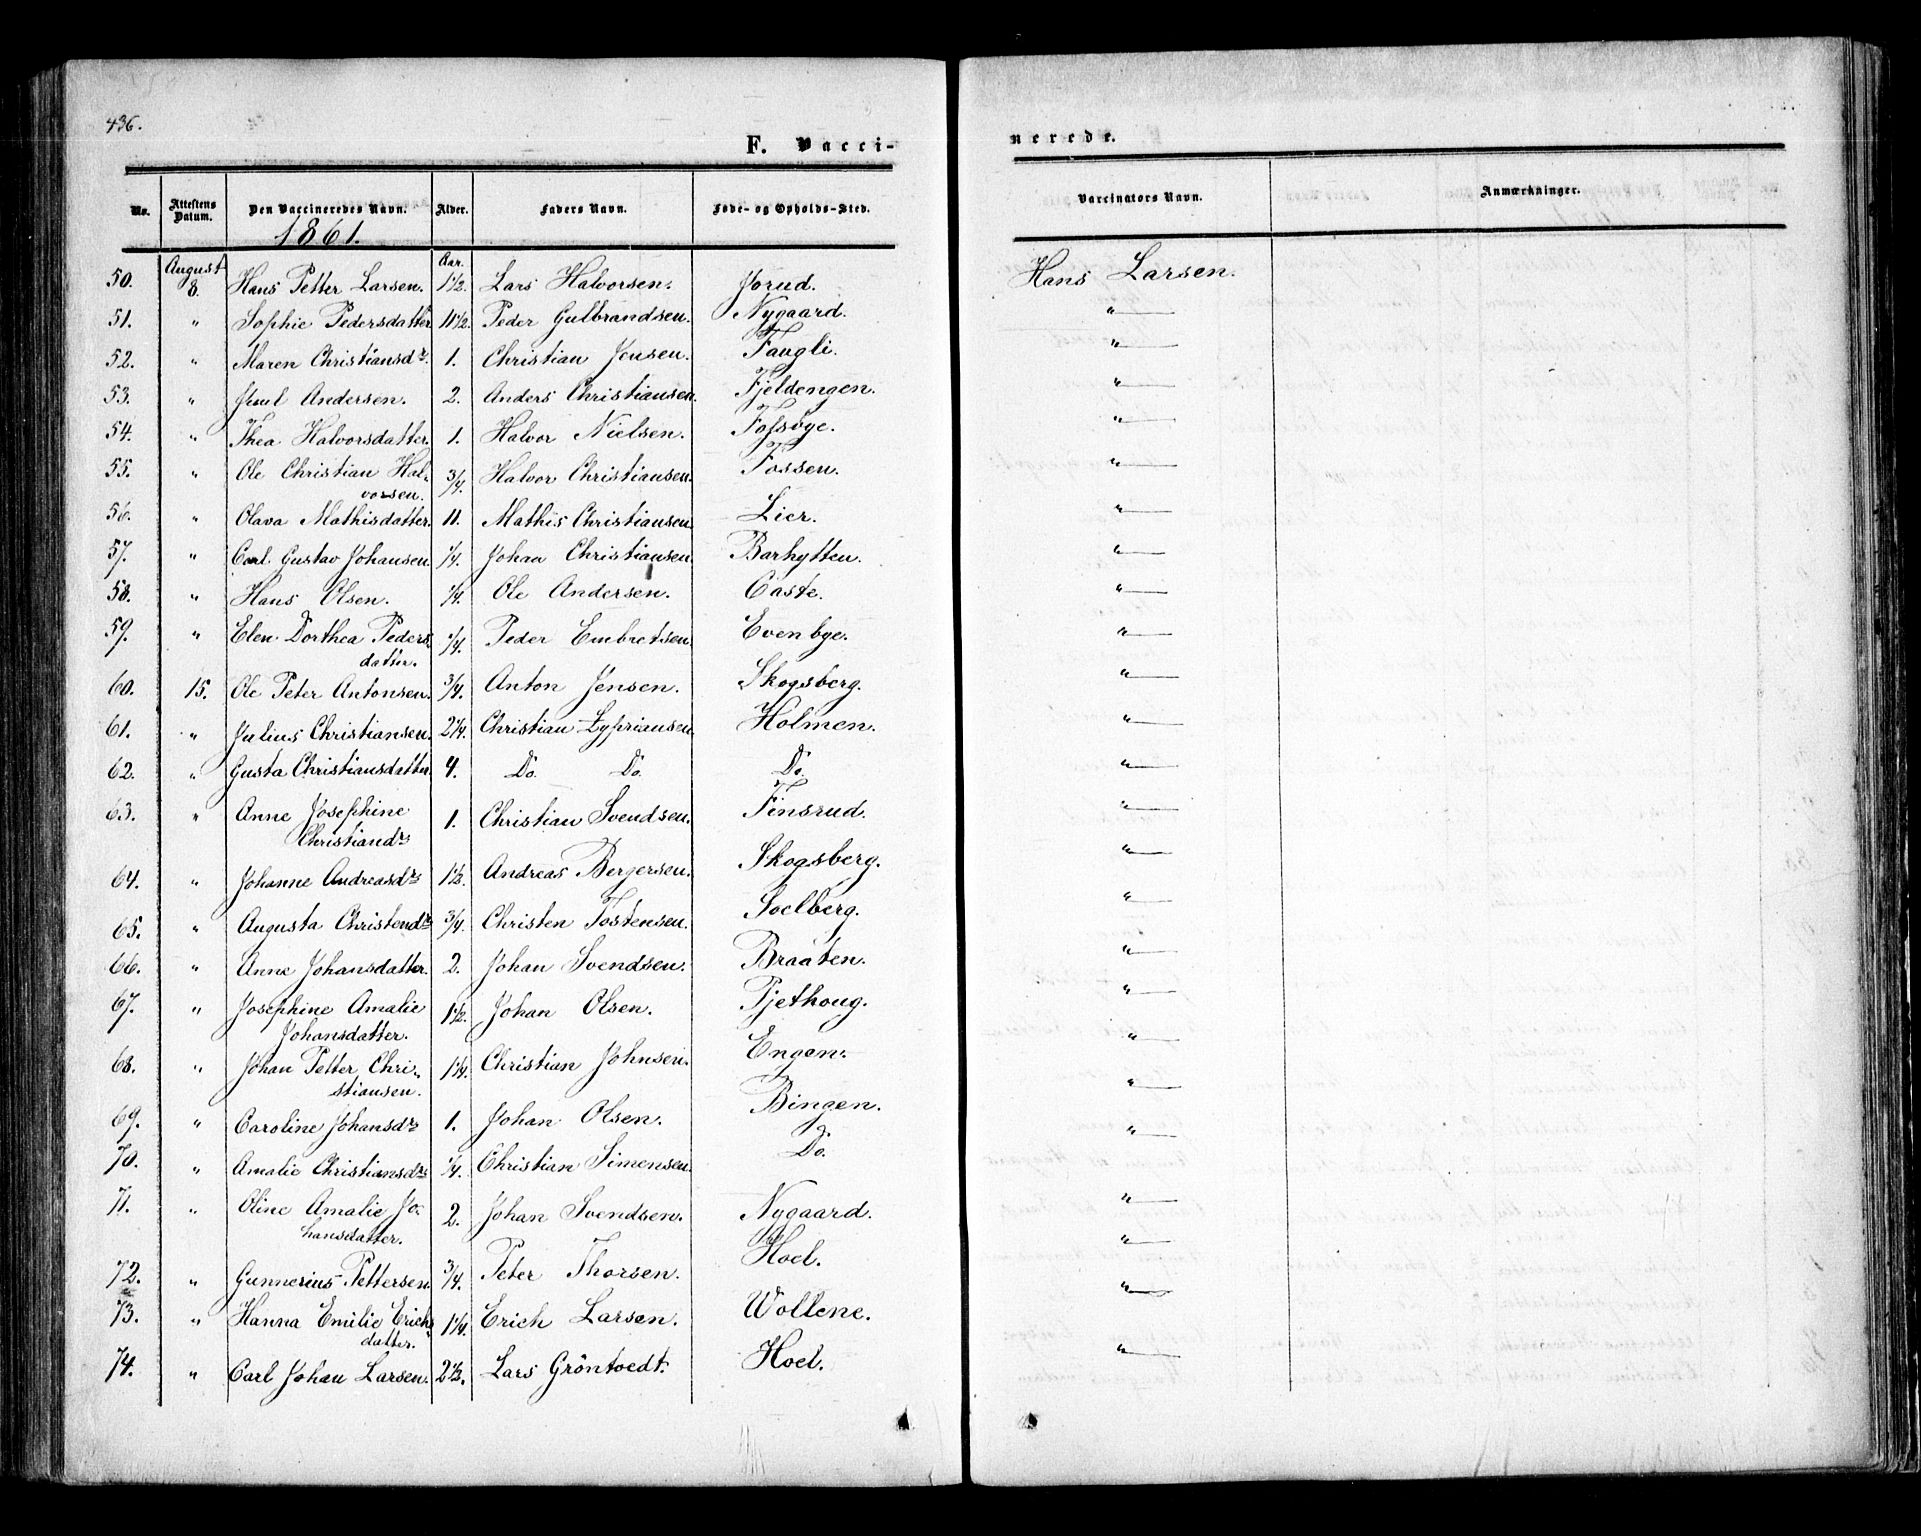 436.
F. Vacci-
nerede.
No. Attestens Datum. Den Vaccineredes Navn. Alder. Faders Navn. Føde- og Opholds-Sted. Vaccinators Navn. Anmærkninger.
1861.
August Aar.
50. 8. Hans Petter Larsen. 1 1/2. Lars Halvorsen. Jorud. Hans Larsen.
51. " Sophie Pedersdatter 11 1/2. Peder Gulbrandsen. Nygaard. "
52. " Maren Christiansdr. 1. Christian Jensen. Faugli. "
53. " Juul Andersen. 2. Anders Christiansen. Fjeldengen. "
54. " Thea Halvorsdatter. 1. Halvor Nielsen. "
55. " Ole Christian Hal-
vorsen. 3/4. Halvor Christiansen. Fossen. "
56. " Olava Mathisdatter. 11. Mathis Christiansen. Lier. "
57. " Carl Gustav Johansen. 1/4. Johan Christiansen. Barhytten. "
58. " Hans Olsen. 1/4. Ole Andersen. Caste. "
59. " Elen Dorthea Peders
datter. 1/4. Peder Embretsen. Evenbye. "
60. 15. Ole Peter Antonsen. 3/4. Anton Jensen. Skogsberg. "
61. " Julius Christiansen. 2 1/4. Christian Zypriansen Holmen. "
62. " Gusta Christiansdatter 4. Do. Do. Do. "
63. " Anne Josephine
Christiandr 1. Christian Svendsen. Finsrud. "
64. " Johanne Andreasdr 1 1/2. Andreas Bergersen. Skogsberg. "
65. " Augusta Christendr 3/4. Christen Tostensen. Soelberg. "
66. " Anne Johansdatter. 2. Johan Svendsen. Braaten. "
67. " Josephine Amalie
Johansdatter. 1 1/2. Johan Olsen. Tjethoug. "
68. " Johan Petter Chri-
stiansen. 1 1/4. Christian Johnsen. Engen. "
69. " Caroline Johansdr 1. Johan Olsen. Bingen. "
70. " Amalie Christiansdr 1/4. Christian Simensen. Do. "
71. " Oline Amalie Jo-
hansdatter. 2. Johan Svendsen. Nygaard. "
72. " Gunnerius Pettersen. 3/4. Peter Thorsen. Hoel. "
73. " Hanna Emilie Erich-
datter. 1 1/4. Erich Larsen. Wollene. "
74. " Carl Johan Larsen. 2 1/2. Lars Gröntoedt. Hoel. "